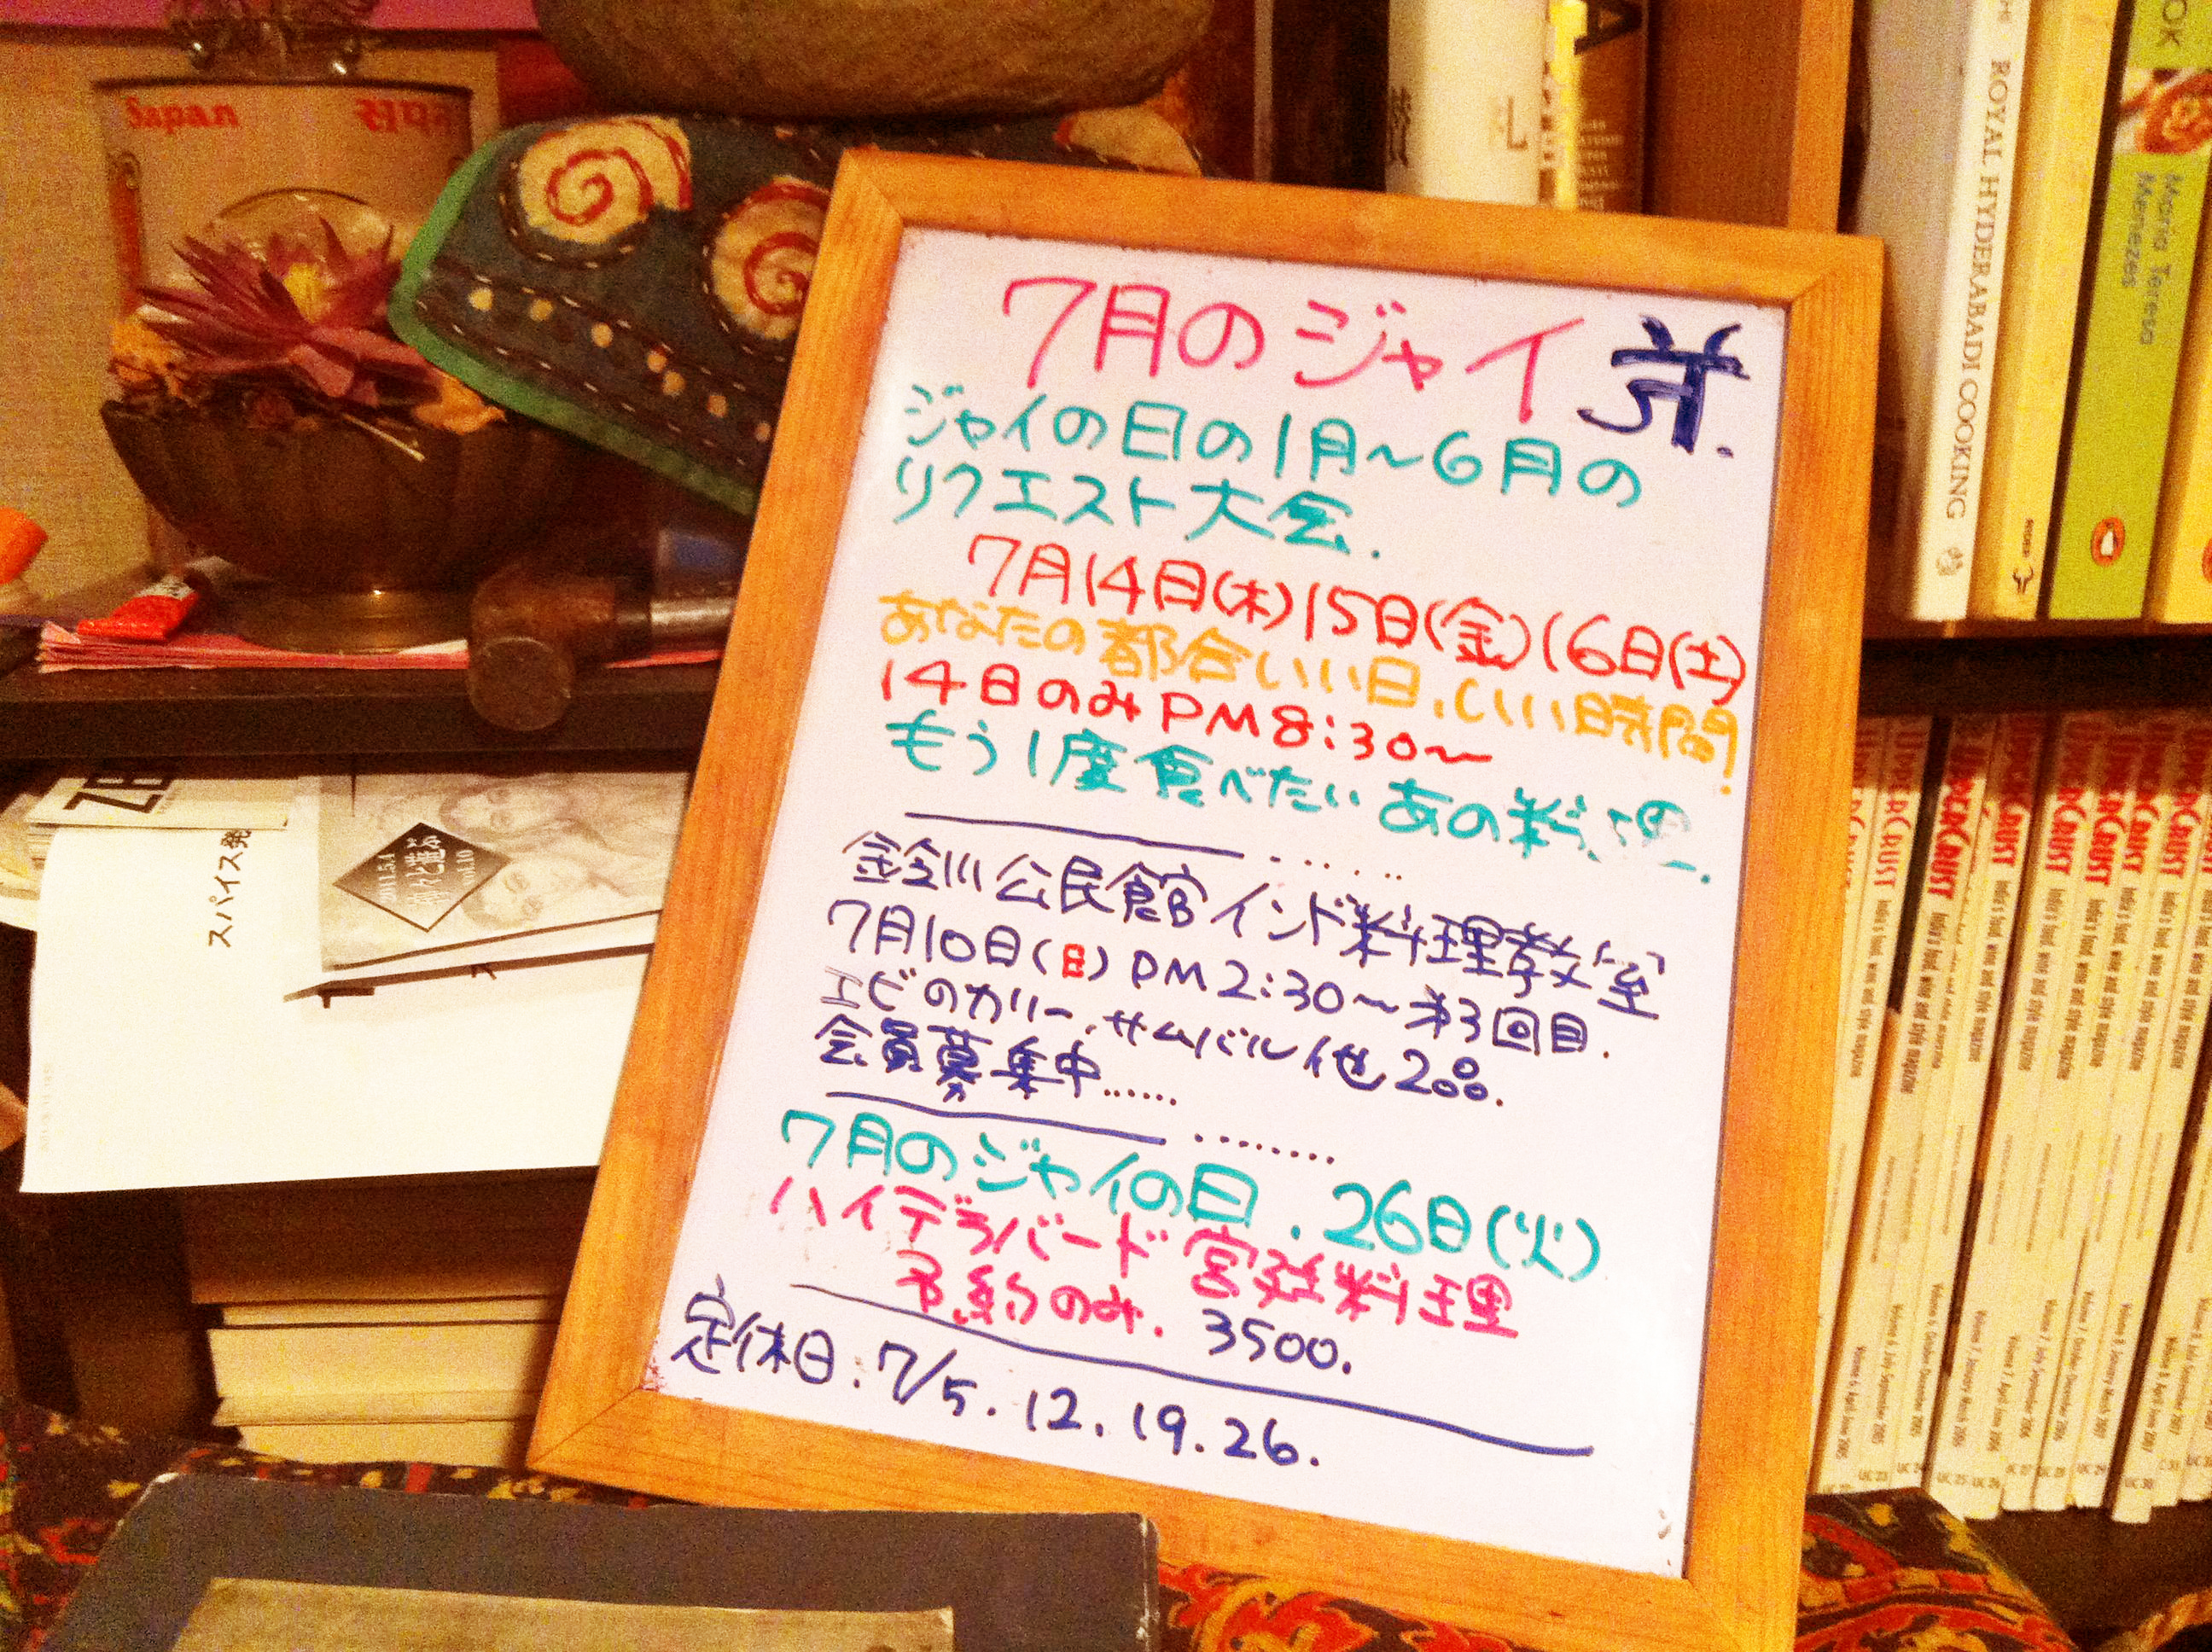 Sapan
सपन
ROYAL HYDERABADI COOKING
Maria Teresa
Menezes
7月のジャイ
ジャイの日の1月〜6月の
リクエスト大会.
7月14日(木)15日(金)16日(土)
あなたの都合いい日、いい時間!
14日のみPM8:30〜
もう1度食べたいあの料理.
鈴川公民館インド料理教室
7月10日(日)PM2:30〜第3回目.
エビのカリー、サムバル他
会員募集中……
7月のジャイの日.26日(火)
ハイデラバード宮廷料理
予約のみ. 3500.
定休日:7/5.12.19.26.
スパイス発
UPPERCRUST
India's food, wine and style magazine